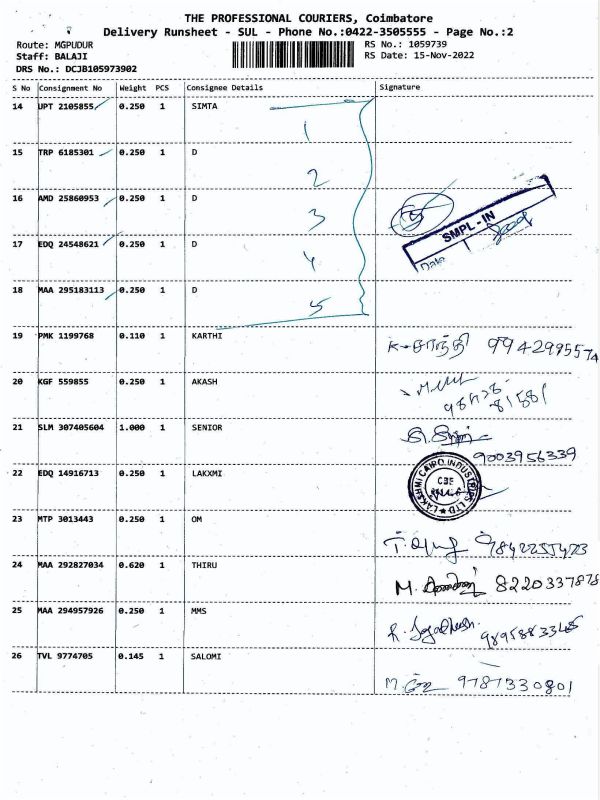 THE PROFESSIONAL COURIERS, Coimbatore
Delivery Runsheet - SUL - Phone No.:0422-3505555 - Page No.:2
Route: MGPUDUR RS No.: 1059739
Staff: BALAJI RS Date: 15-Nov-2022
DRS No.: DCJB105973902
S No Consignment No Weight PCS Consignee Details Signature
14 UPT 2105855 0.250 1 SIMTA
1
15 TRP 6185301 0.250 1 D
2
16 AMD 25860953 0.250 1 D
3
SMPL - IN
Date
17 EDQ 24548621 0.250 1 D
4
18 MAA 295183113 0.250 1 D
5
19 PMK 1199768 0.110 1 KARTHI
K. சாந்தி 9942995574
20 KGF 559855 0.250 1 AKASH
21 SLM 307405604 1.000 1 SENIOR
9003956339
22 EDQ 14916713 0.250 1 LAKXMI
LAKSHMI CAIPO INDUSTRIES LTD
CBE
23 MTP 3013443 0.250 1 OM
24 MAA 292827034 0.620 1 THIRU
M. 8220337878
25 MAA 294957926 0.250 1 MMS
26 TVL 9774705 0.145 1 SALOMI
9787330801